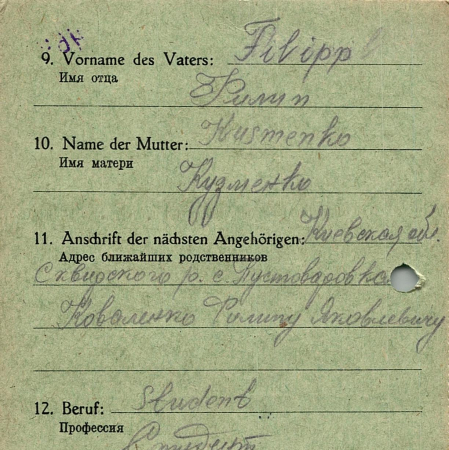 9. Vorname des Vaters: Filipp
Имя отца
Филип
10. Name der Mutter: Kusmenko
Имя матери
Кузменко
11. Anschrift der nächsten Angehörigen: Киевская обл.
Адрес ближайших родственников
Сквидского р. с. Пустоваровка
Коваленко Филипу Яковлевичу
12. Beruf: Student
Профессия
Студент